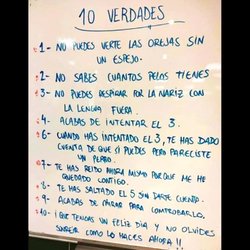 10 VERDADES
1- NO PUEDES VERTE LAS OREJAS SIN
UN ESPEJO.
2- NO SABES CUANTOS PELOS TIENES
3- NO PUEDES RESPIRAR POR LA NARIZ CON
LA LENGUA FUERA.
4- ACABAS DE INTENTAR EL 3.
6- CUANDO HAS INTENTADO EL 3, TE HAS DADO
CUENTA DE QUE SI PUEDES PERO PARECISTE
UN PERRO.
7- TE HAS REIDO AHORA MISMO PORQUE ME HE
QUEDADO CONTIGO.
8- TE HAS SALTADO EL 5 SIN DARTE CUENTA.
9- ACABAS DE MIRAR PARA COMPROBARLO.
10- ¡QUE TENGAS UN FELIZ DIA Y NO OLVIDES
SONREIR COMO LO HACES AHORA!!